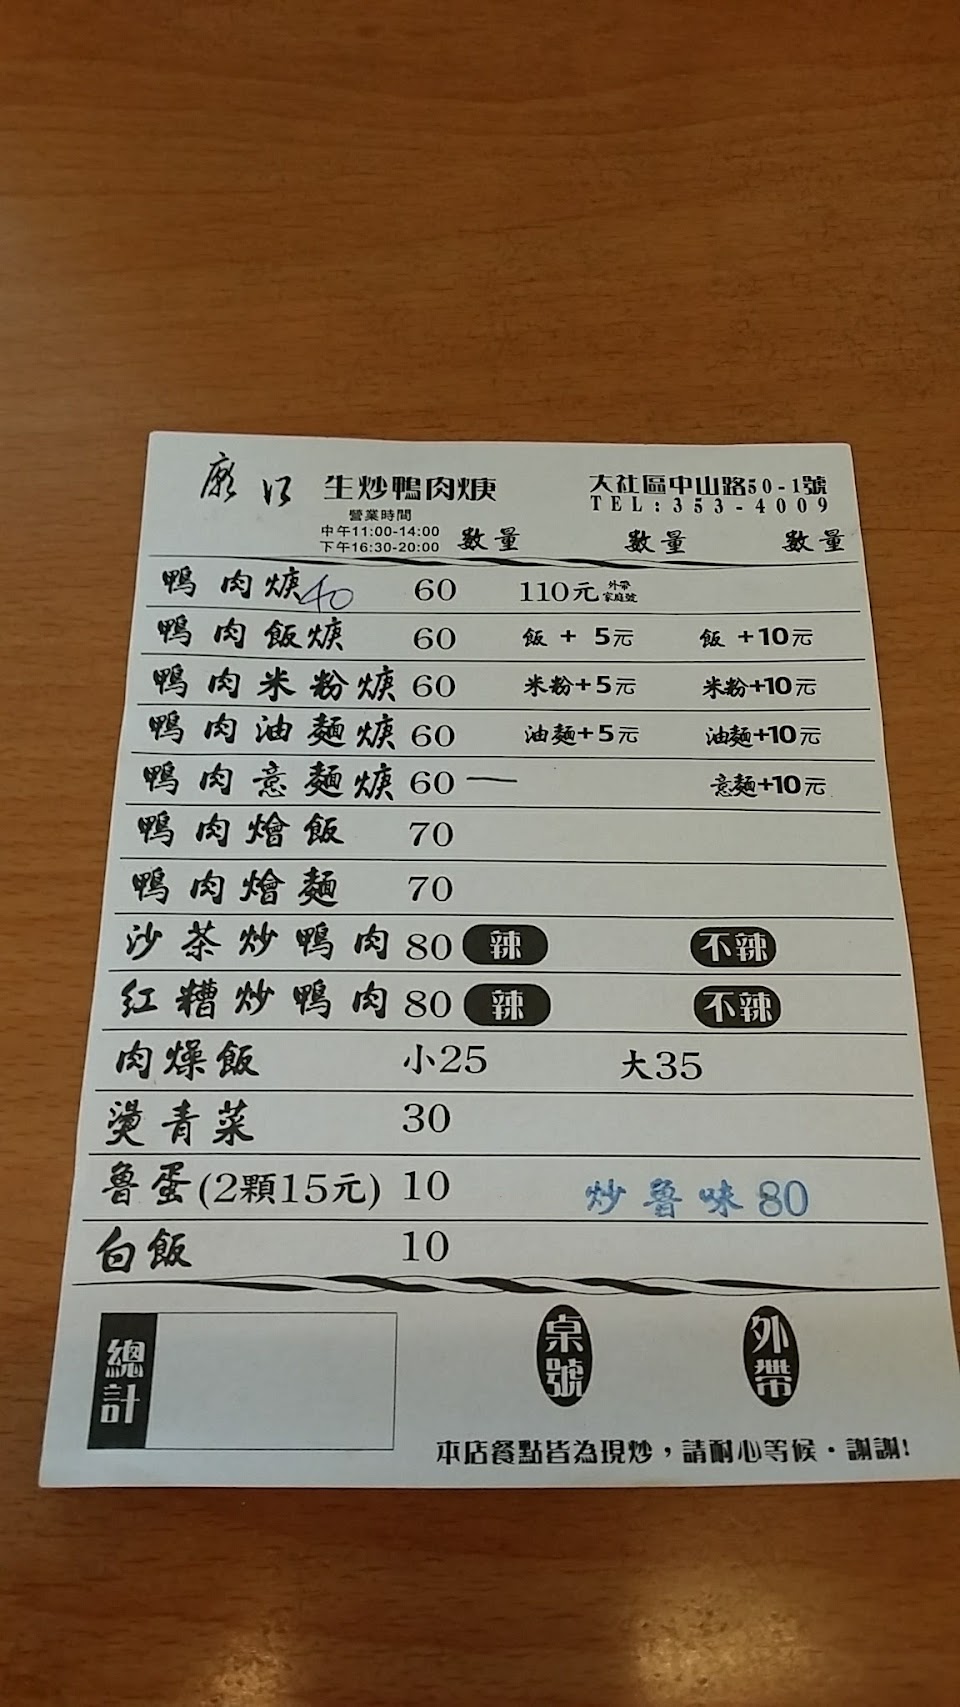 生炒鴨肉焿
大社區中山路50-1號
TEL:353-4009
營業時間
中午11:00-14:00
下午16:30-20:00
數量 數量 數量
鴨肉焿 40 60 110元 外帶家庭號
鴨肉飯焿 60 飯+5元 飯+10元
鴨肉米粉焿 60 米粉+5元 米粉+10元
鴨肉油麵焿 60 油麵+5元 油麵+10元
鴨肉意麵焿 60 一 意麵+10元
鴨肉燴飯 70
鴨肉燴麵 70
沙茶炒鴨肉 80 辣 不辣
紅糟炒鴨肉 80 辣 不辣
肉燥飯 小25 大35
燙青菜 30
魯蛋(2顆15元) 10 炒魯味80
白飯 10
總計
桌號
外帶
本店餐點皆為現炒，請耐心等候・謝謝!